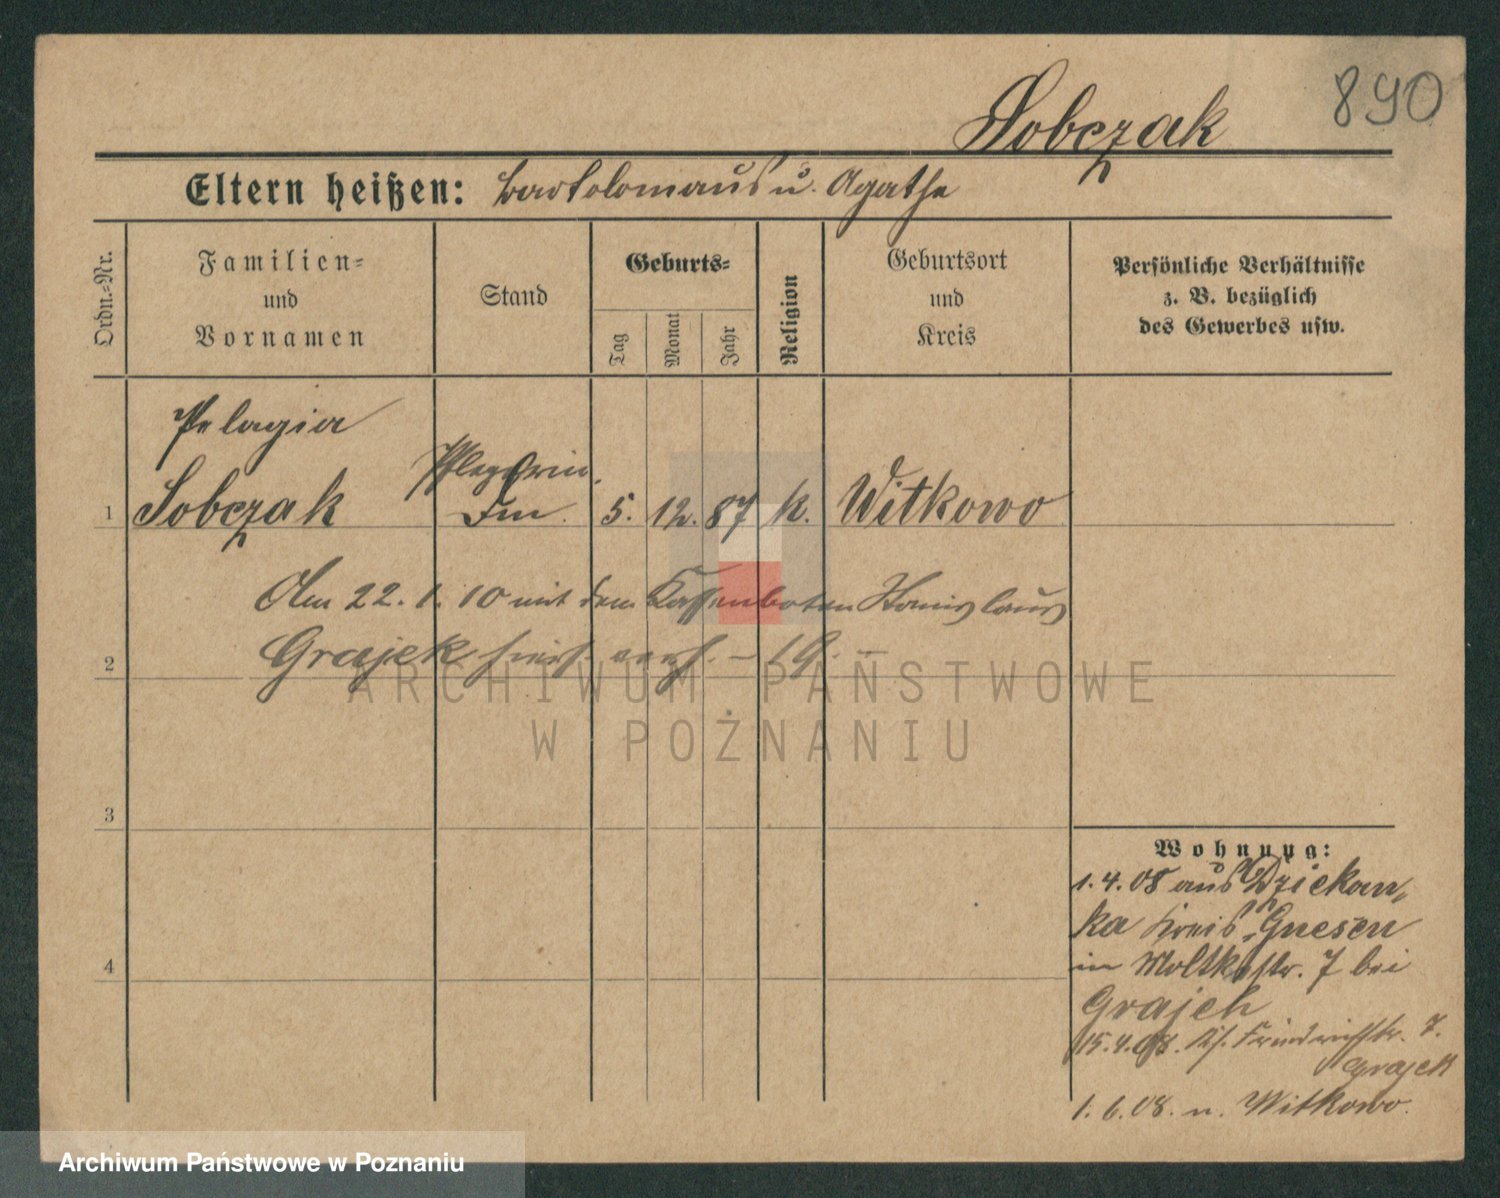 890
Sobczak
Eltern heißen: Bartolomäus u. Agathe
Ordn.-Nr.
Familien-
und
Vornamen
Stand
Geburts-
Tag
Monat
Jahr
Religion
Geburtsort
und
Kreis
Persönliche Verhältnisse
z. B. bezüglich
des Gewerbes usw.
Pelagia
Pflegerin
1 Sobczak 5. 12. 87 k. Witkowo
Am 22. 1. 10 mit dem Kassenboten Stanislaus
Grajek hier verh.
2
3
4
Wohnung:
1.4.08 aus Dziekan-
ka Kreis Gnesen
in Moltkestr. 7 bei
Grajek
15.4.08. Friedrichstr. 7.
Grajek
1.6.08. n. Witkowo.
ARCHIWUM PAŃSTWOWE
W POZNANIU
Archiwum Państwowe w Poznaniu